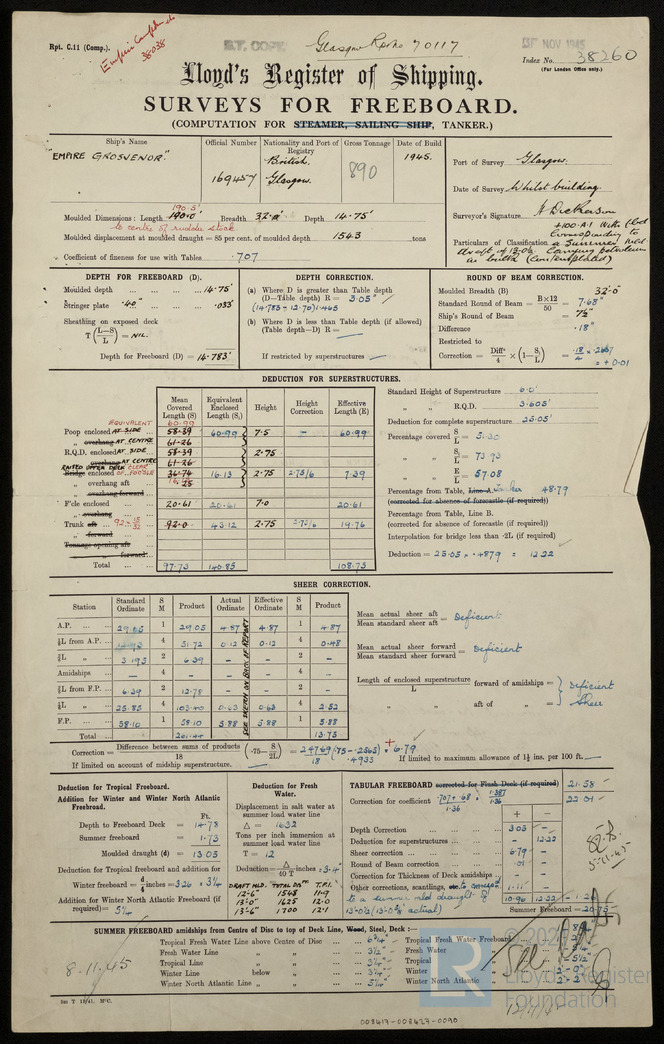 Rpt. C.11 (Comp.).
Glasgow Rpt No 70117
NOV 1945
Index No. 38260
(For London Office only.)
38038
Lloyd's Register of Shipping.
SURVEYS FOR FREEBOARD.
(COMPUTATION FOR STEAMER, SAILING SHIP, TANKER.)
Ship's Name
"EMPIRE GROSVENOR."
Official Number
169457
Nationality and Port of Registry
British.
Glasgow.
Gross Tonnage
890
Date of Build
1945.
Port of Survey Glasgow.
Date of Survey Whilst building
Surveyor's Signature H Dickinson
Particulars of Classification +100 A1 With fbd
corresponding to
a Summer Mld
draught of 13.06 Carrying petroleum
in bulk (contemplated)
190.5'
Moulded Dimensions: Length 190.0' Breadth 32.0' Depth 14.75'
to centre of rudder stock
Moulded displacement at moulded draught = 85 per cent. of moulded depth 1543 tons
Coefficient of fineness for use with Tables .707
DEPTH FOR FREEBOARD (D).
Moulded depth 14.75'
Stringer plate .40" .033'
Sheathing on exposed deck
T (L-S/L) = NIL.
Depth for Freeboard (D) = 14.783'
DEPTH CORRECTION.
(a) Where D is greater than Table depth
(D—Table depth) R = 3.05"
(14.783 - 12.70) 1.465
(b) Where D is less than Table depth (if allowed)
(Table depth—D) R =
If restricted by superstructures
ROUND OF BEAM CORRECTION.
Moulded Breadth (B) 32.0'
Standard Round of Beam = B×12/50 = 7.68"
Ship's Round of Beam = 7½"
Difference .18"
Restricted to
Correction = Diff/4 × (1-S₁/L) = .18/4 × .2607
= +0.01
DEDUCTION FOR SUPERSTRUCTURES.
Mean Covered Length (S)
Equivalent Enclosed Length (S₁)
Height
Height Correction
Effective Length (E)
EQUIVALENT 60.99
Poop enclosed AT SIDE 58.39 60.99 7.5 — 60.99
„ overhang AT CENTRE 61.26
R.Q.D. enclosed AT SIDE 58.39 2.75
overhang AT CENTRE 61.26
RAISED UPPER DECK CLEAR
Bridge enclosed OF FOCSLE 36.74 16.13 2.75 2.75/6 7.39
„ overhang aft
„ overhang forward
F'cle enclosed 20.61 20.61 7.0 20.61
„ overhang
Trunk aft 92.0 43.12 2.75 2.75/6 19.76
„ forward
Tonnage opening aft
„ forward
Total 97.73 140.85 108.75
Standard Height of Superstructure 6.0'
„ „ R.Q.D. 3.605'
Deduction for complete superstructure 25.05'
Percentage covered S/L = 51.30
„ „ S₁/L = 73.93
„ „ E/L = 57.08
Percentage from Table, Line A Tanker 48.79
(corrected for absence of forecastle (if required))
Percentage from Table, Line B.
(corrected for absence of forecastle (if required))
Interpolation for bridge less than .2L (if required)
Deduction = 25.05 × .4879 = 12.22
SHEER CORRECTION.
Station
Standard Ordinate
S M
Product
Actual Ordinate
Effective Ordinate
S M
Product
A.P. 29.05 1 29.05 4.87 4.87 1 4.87
⅙L from A.P. 12.93 4 51.72 0.12 0.12 4 0.48
⅓L „ 3.195 2 6.39 — — 2 —
Amidships — 4 — — — 4 —
⅓L from F.P. 6.39 2 12.78 2 —
⅙L „ 25.85 4 103.40 0.63 0.63 4 2.52
F.P. 58.10 1 58.10 5.88 5.88 1 5.88
Total 261.44 13.75
SEE SKETCH ON BACK OF REPORT
Mean actual sheer aft
Mean standard sheer aft = Deficient
Mean actual sheer forward
Mean standard sheer forward = Deficient
Length of enclosed superstructure forward of amidships =
L
„ aft of „ =
Deficient
Sheer
Correction = Difference between sums of products/18 (.75 - S/2L) = 247.69/18 (.75 - .2565) = + 6.79
.4935
If limited on account of midship superstructure.
If limited to maximum allowance of 1½ ins. per 100 ft.
Deduction for Tropical Freeboard.
Addition for Winter and Winter North Atlantic Freeboard.
Ft.
Depth to Freeboard Deck = 14.78
Summer freeboard = 1.73
Moulded draught (d) = 13.05
Deduction for Tropical freeboard and addition for
Winter freeboard = d/4 inches = 3.26 = 3¼
Addition for Winter North Atlantic Freeboard (if required) = 5¼
Deduction for Fresh Water.
Displacement in salt water at summer load water line
Δ = 1632
Tons per inch immersion at summer load water line
T = 12
Deduction = Δ/40 T inches = 3.4"
DRAFT MLD. TOTAL DISPT. T.P.I.
12'-6" 1548 11.9
13'-0" 1625 12.0
13'-6" 1700 12.1
TABULAR FREEBOARD corrected for Flush Deck (if required) 21.58
Correction for coefficient .707 + .68/1.36 = 1.387/1.36 22.01
+ —
Depth Correction 3.05 —
Deduction for superstructures — 12.22
Sheer correction 6.79 —
Round of Beam correction .01
Correction for Thickness of Deck amidships — —
Other corrections, scantlings, etc. to correspond 1.11 —
to a summer mld draught of
13'-0⅝" (13'-0⅝" actual)
10.96 12.22 -1.26
Summer Freeboard = 20.75
SUMMER FREEBOARD amidships from Centre of Disc to top of Deck Line, Wood, Steel, Deck :—
Tropical Fresh Water Line above Centre of Disc 6¾"
Fresh Water Line „ „ 3½"
Tropical Line „ „ 3¼"
Winter Line below „ 3¼"
Winter North Atlantic Line „ „ 5¼"
Tropical Fresh Water Freeboard
Fresh Water „
Tropical „
Winter „
Winter North Atlantic „
8.11.45
© 20
LR
Lloyd's Register
Foundation
008417-008427-0090